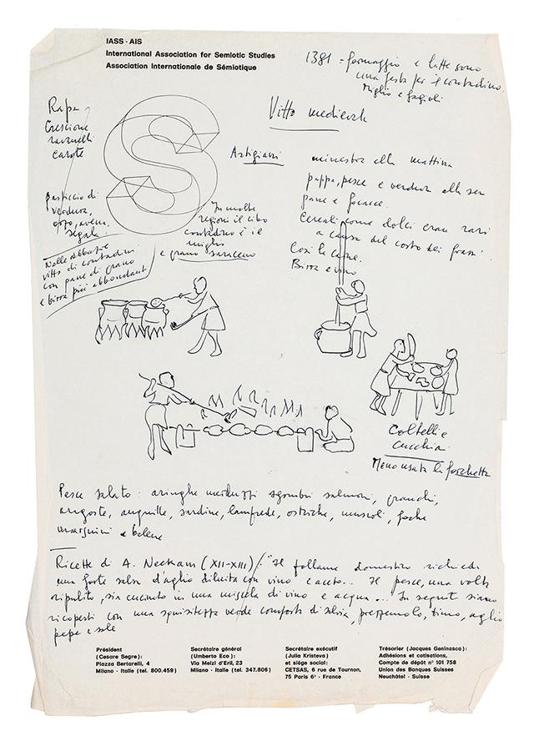 IASS - AIS
International Association for Semiotic Studies
Association Internationale de Sémiotique
1381 - formaggio e latte sono
una festa per il contadino.
Miglio e fagioli
Vitto medievale
Rapa
Crescione
ravanelli
carote
Artigiani
minestra alla mattina
pappa, pesce e verdura alla sera
pane e focacce.
Cereali come dolci erano rari
a causa del costo dei forni.
Così la carne.
Birra e vino
pasticcio di
verdura,
orzo, avena,
segale
In molte
regioni il cibo
contadino è il
miglio
e grano saraceno
Nelle abbazie
vitto di contadini
con pane di grano
e birra più abbondanti
Coltelli e
cucchiai
Meno usata la forchetta
Pesce salato: aringhe merluzzi sgombri salmoni, granchi,
aragoste, anguille, sardine, lamprede, ostriche, muscoli, foche
marsuini e balene
Ricette di A. Neckam (XII-XIII): "Il pollame domestro richiede
una forte salsa d'aglio diluita con vino o aceto... Il pesce, una volta
ripulito, sia cucinato in una miscela di vino e acqua... In seguito siano
ricoperti con una squisitezza verde composta di salvia, prezzemolo, timo, aglio
pepe e sale
Président
(Cesare Segre):
Piazza Bertarelli, 4
Milano - Italie (tel. 800.459)
Secrétaire général
(Umberto Eco):
Via Melzi d'Eril, 23
Milano - Italie (tel. 347.806)
Secrétaire exécutif
(Julia Kristeva)
et siège social:
CETSAS, 6 rue de Tournon,
75 Paris 6e - France
Trésorier (Jacques Geninasca):
Adhésions et cotisations,
Compte de dépôt n° 101 758
Union des Banques Suisses
Neuchâtel - Suisse